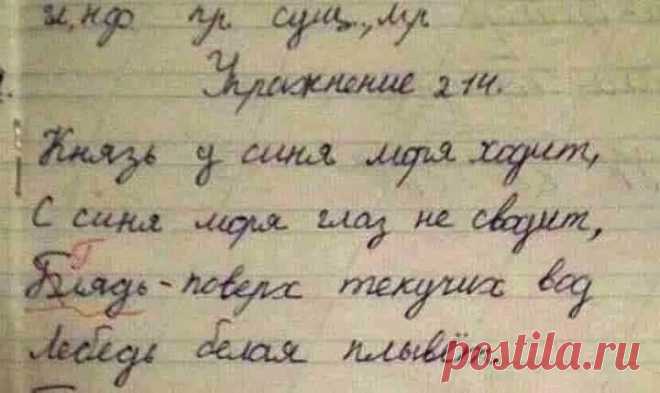 н, нф. пр сущ., мр
Упражнение 214.
Князь у синя моря ходит,
С синя моря глаз не сводит,
Г
Блядь - поверх текучих вод
Лебедь белая плывёт.
postila.ru